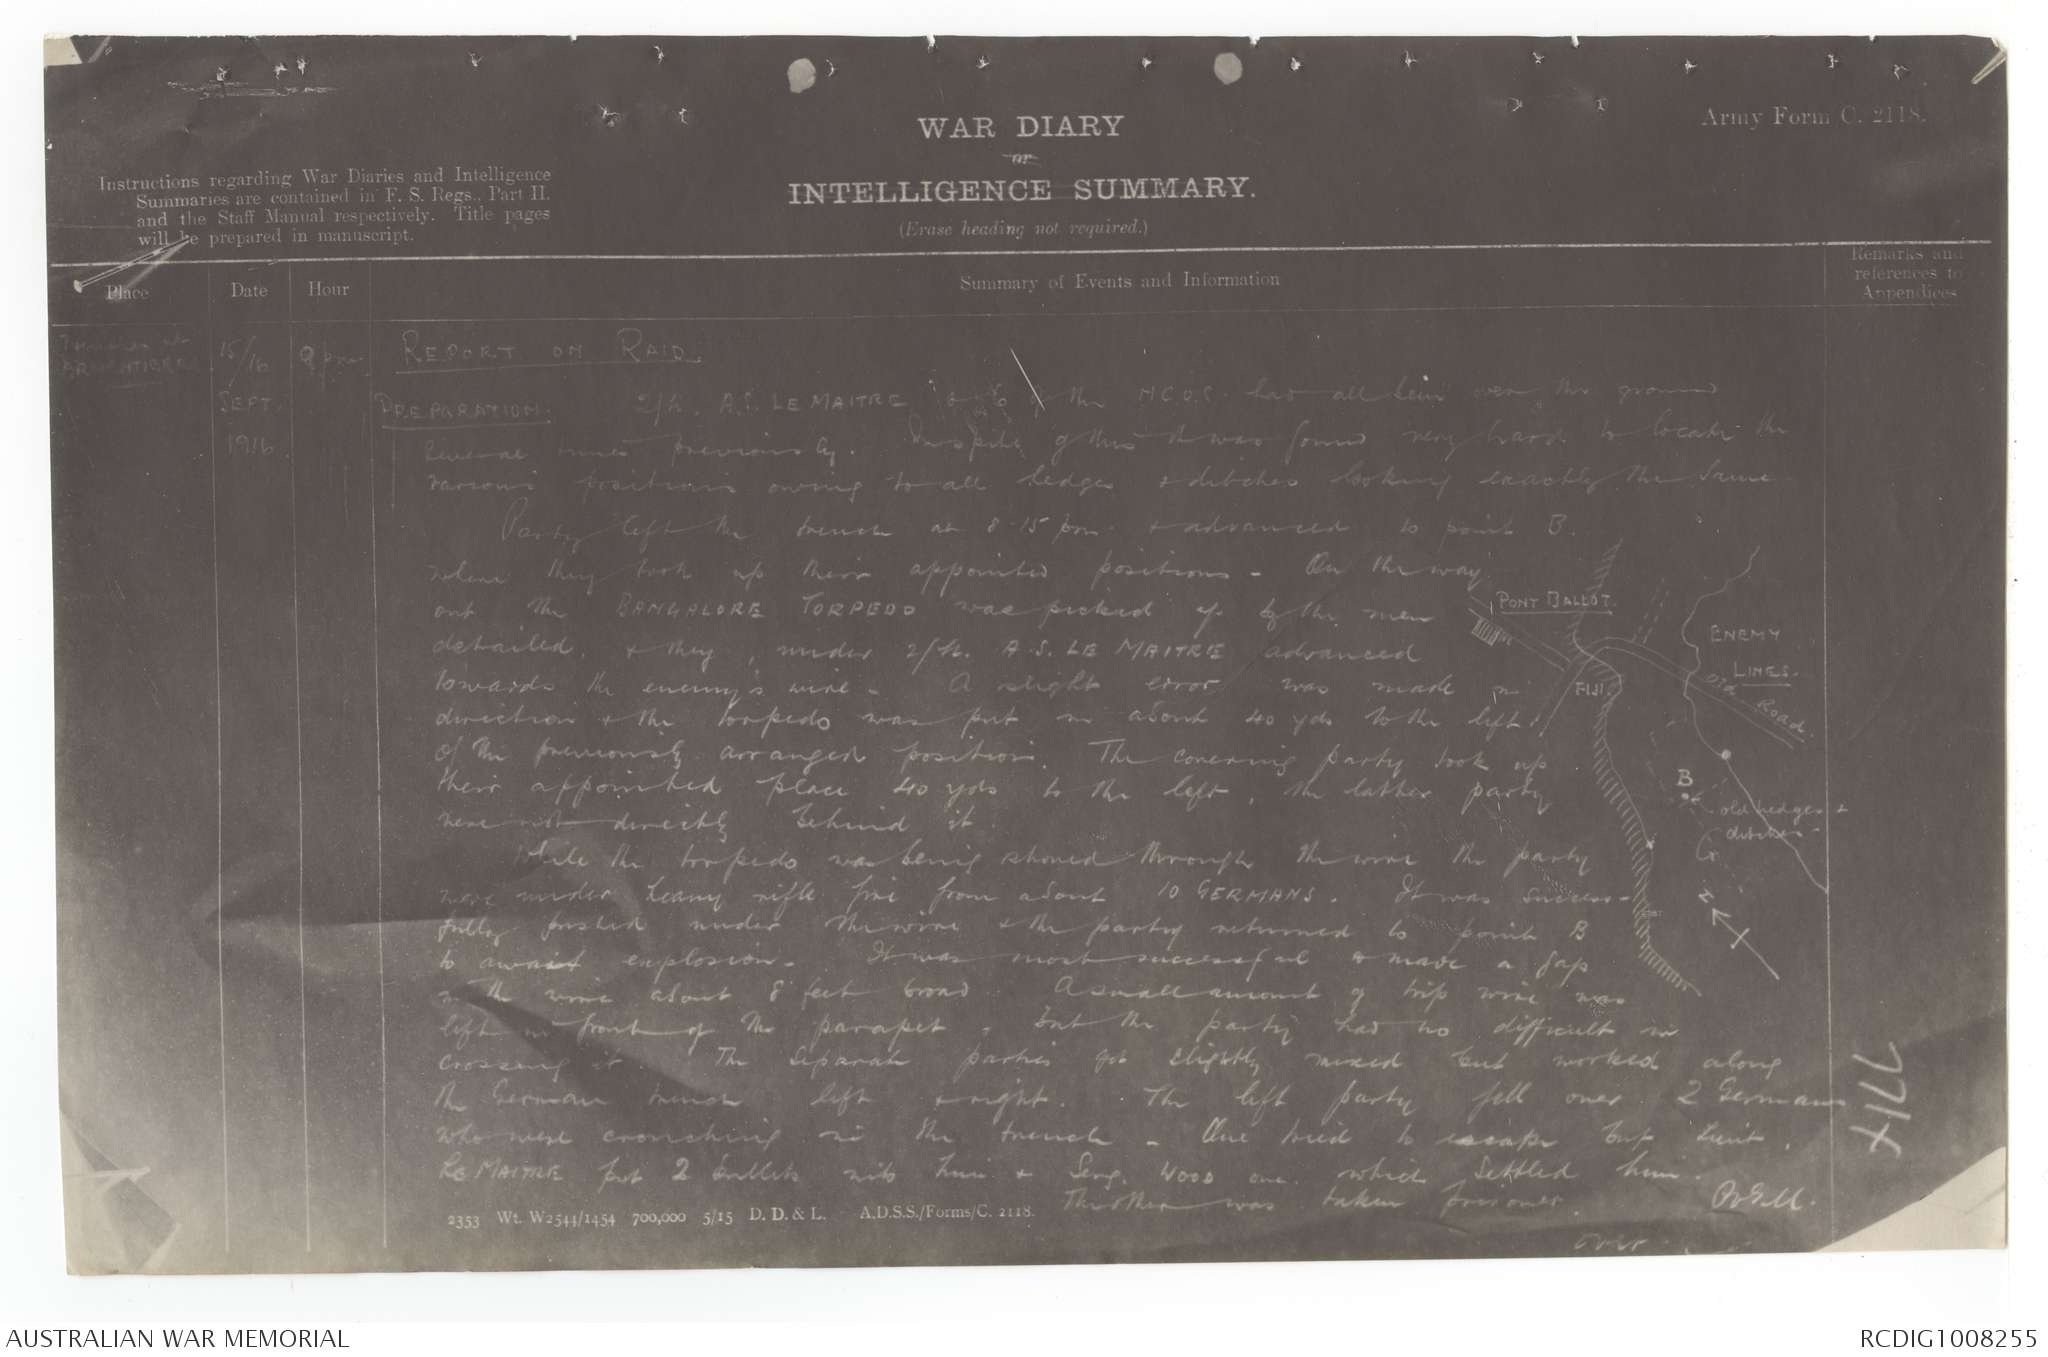 Army Form C. 2118.
WAR DIARY
or
INTELLIGENCE SUMMARY.
(Erase heading not required.)
Instructions regarding War Diaries and Intelligence
Summaries are contained in F. S. Regs., Part II.
and the Staff Manual respectively. Title pages
will be prepared in manuscript.
Place
Date
Hour
Summary of Events and Information
Remarks and
references to
Appendices
Trenches at
ARMENTIERES
15/16
SEPT.
1916.
9 pm
REPORT ON RAID.
PREPARATION. 2/Lt. A.S. LE MAITRE & of the N.C.O.S. had all been over the ground
several times previously. In spite of this it was found very hard to locate the
various positions owing to all hedges & ditches looking exactly the same
Party left the trench at 8.15 pm & advanced to point B.
where they took up their appointed positions - On the way
out the BANGALORE TORPEDO was picked up by the men
detailed, & they, under 2/Lt. A.S. LE MAITRE advanced
towards the enemy's wire - A slight error was made in
direction & the torpedo was put in about 40 yds to the left
of the previously arranged position. The covering party took up
their appointed place 40 yds to the left, the latter party
were not directly behind it
While the torpedo was being shoved through the wire the party
were under heavy rifle fire from about 10 GERMANS. It was success-
fully pushed under the wire & the party returned to point B
to await explosion - It was most successful & made a gap
in the wire about 8 feet broad A small amount of trip wire was
left in front of the parapet - but the party had no difficult in
crossing it The separate parties got slightly mixed but worked along
the German trench left & right. The left party fell over 2 Germans
who were crouching in the trench - One tried to escape but Lieut.
LE MAITRE put 2 bullets into him & Serg. WOOD one which settled him.
The other was taken prisoner.
over
PONT BALLOT.
ENEMY
LINES.
FIJI.
Old Road.
B
old hedges &
ditches
G
N
774
2353 Wt. W2544/1454 700,000 5/15 D. D. & L. A.D.S.S./Forms/C. 2118.
AUSTRALIAN WAR MEMORIAL
RCDIG1008255